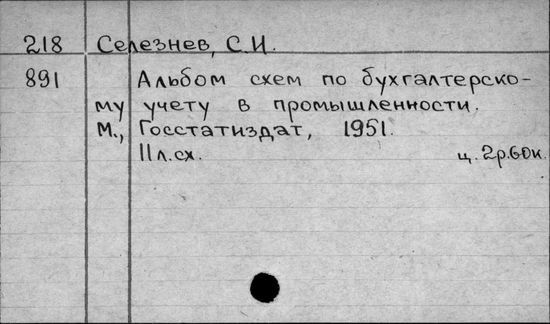 218 Селезнев, С.И.
891 Альбом схем по бухгалтерско-
му учету в промышленности.
М., Госстатиздат, 1951.
11л.сх. ц. 2р.60к.